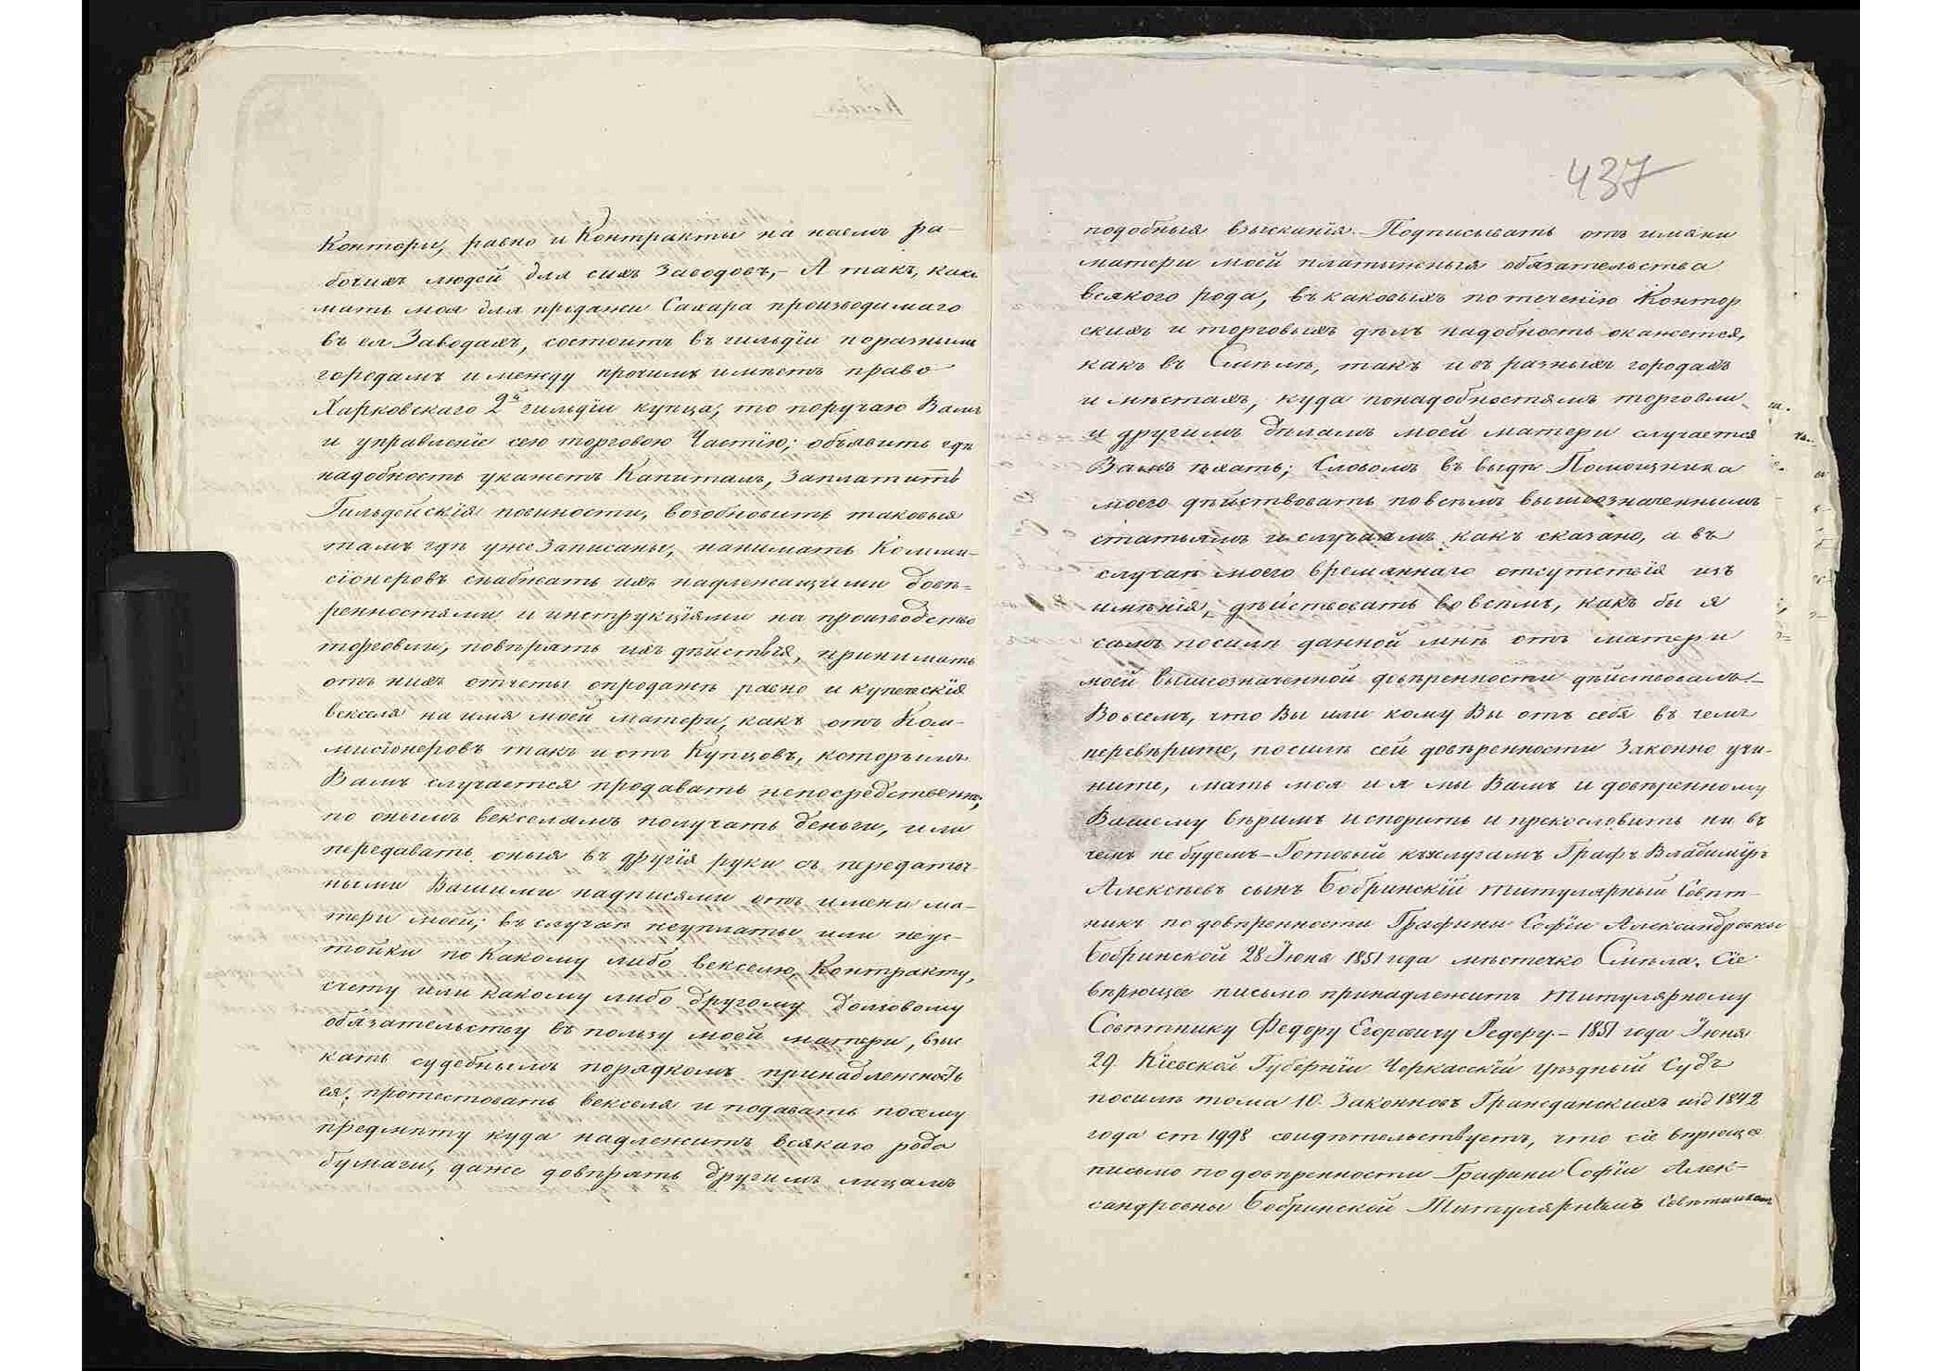 Конторы, равно и Контракты на наемъ ра-
бочихъ людей для сихъ Заводовъ,- А такъ, какъ
мать моя для продажи Сахара производимаго
въ ея Заводахъ, состоитъ въ гильдіи по разнымъ
городамъ и между прочимъ имѣетъ право
Харковскаго 2й гильдіи купца, то поручаю Вамъ
и управленіе сею торговою Частію; объявить гдѣ
надобность укажетъ Капиталъ, Заплатить
Гильдейскія повинности, возобновить таковыя
тамъ гдѣ уже Записаны, нанимать Комми-
сіонеровъ снабжать ихъ надлежащими довѣ-
ренностями и инструкціями на производство
торговли, повѣрять ихъ дѣйствія, принимать
отъ нихъ отчеты о продажѣ равно и купеческія
векселя на имя моей матери, какъ отъ Ком-
мисіонеровъ такъ и отъ Купцовъ, которымъ
Вамъ случается продавать непосредственно,
по онымъ векселямъ получать деньги, или
передавать оныя въ другія руки съ передаточ-
ными Вашими надписями отъ имени ма-
тери моей; въ случаѣ неуплаты или неус-
тойки по Какому либо векселю, Контракту,
счету или какому либо другому долговому
обязательству въ пользу моей матери, взыс
кать судебнымъ порядкомъ принадлежность
ея; протестовать векселя и подавать посему
предмѣту куда надлежитъ всякаго рода
бумаги, даже довѣрять другимъ лицамъ
437
подобныя взысканія. Подписывать отъ имяни
матери моей платѣжныя обязательства
всякого рода, въ каковыхъ по теченію Контор
скихъ и торговыхъ дѣлъ надобность окажется,
какъ въ Смѣлѣ, такъ и въ разныхъ городахъ
и мѣстахъ, куда по надобностямъ торговли
и другимъ дѣламъ моей матери случается
Вамъ ѣхать; Словомъ въ видѣ Помощника
моего дѣйствовать по всѣмъ вышеозначеннымъ
статьямъ и случаямъ какъ сказано, а въ
случаѣ моего врѣмяннаго отсутствія изъ
имѣнія, дѣйствовать во всѣмъ, какъ бы я
самъ посилѣ данной мнѣ отъ матери
моей вышеозначенной довѣренности дѣйствовалъ.-
Во всемъ, что Вы или кому Вы отъ себя въ чемъ
перевѣрите, посилѣ сей довѣренности Законно учи-
ните, мать моя и я мы Вамъ и довѣренному
Вашему вѣримъ и спорить и прекословить ни въ
чемъ не будемъ-Готовый къ услугамъ Графъ Владиміръ
Алексѣевъ сынъ Бобринскій титулярный Совѣт-
никъ по довѣренности Графини Софіи Александровны
Бобринской 28 Іюня 1851 года мѣстечко Смѣла. Сіе
вѣрющее письмо принадлежитъ титулярному
Совѣтнику Федору Егоровичу Редеру.- 1851 года Іюня
29. Кіевской Губерніи Черкасскій уѣздный Судъ
посилѣ тома 10. Законовъ Гражданскихъ изд 1842
года ст 1998 свидѣтельствуетъ, что сіе вѣрющее
письмо по довѣренности Графини Софіи Алек-
сандровны Бобринской Титулярнымъ Совѣтникомъ